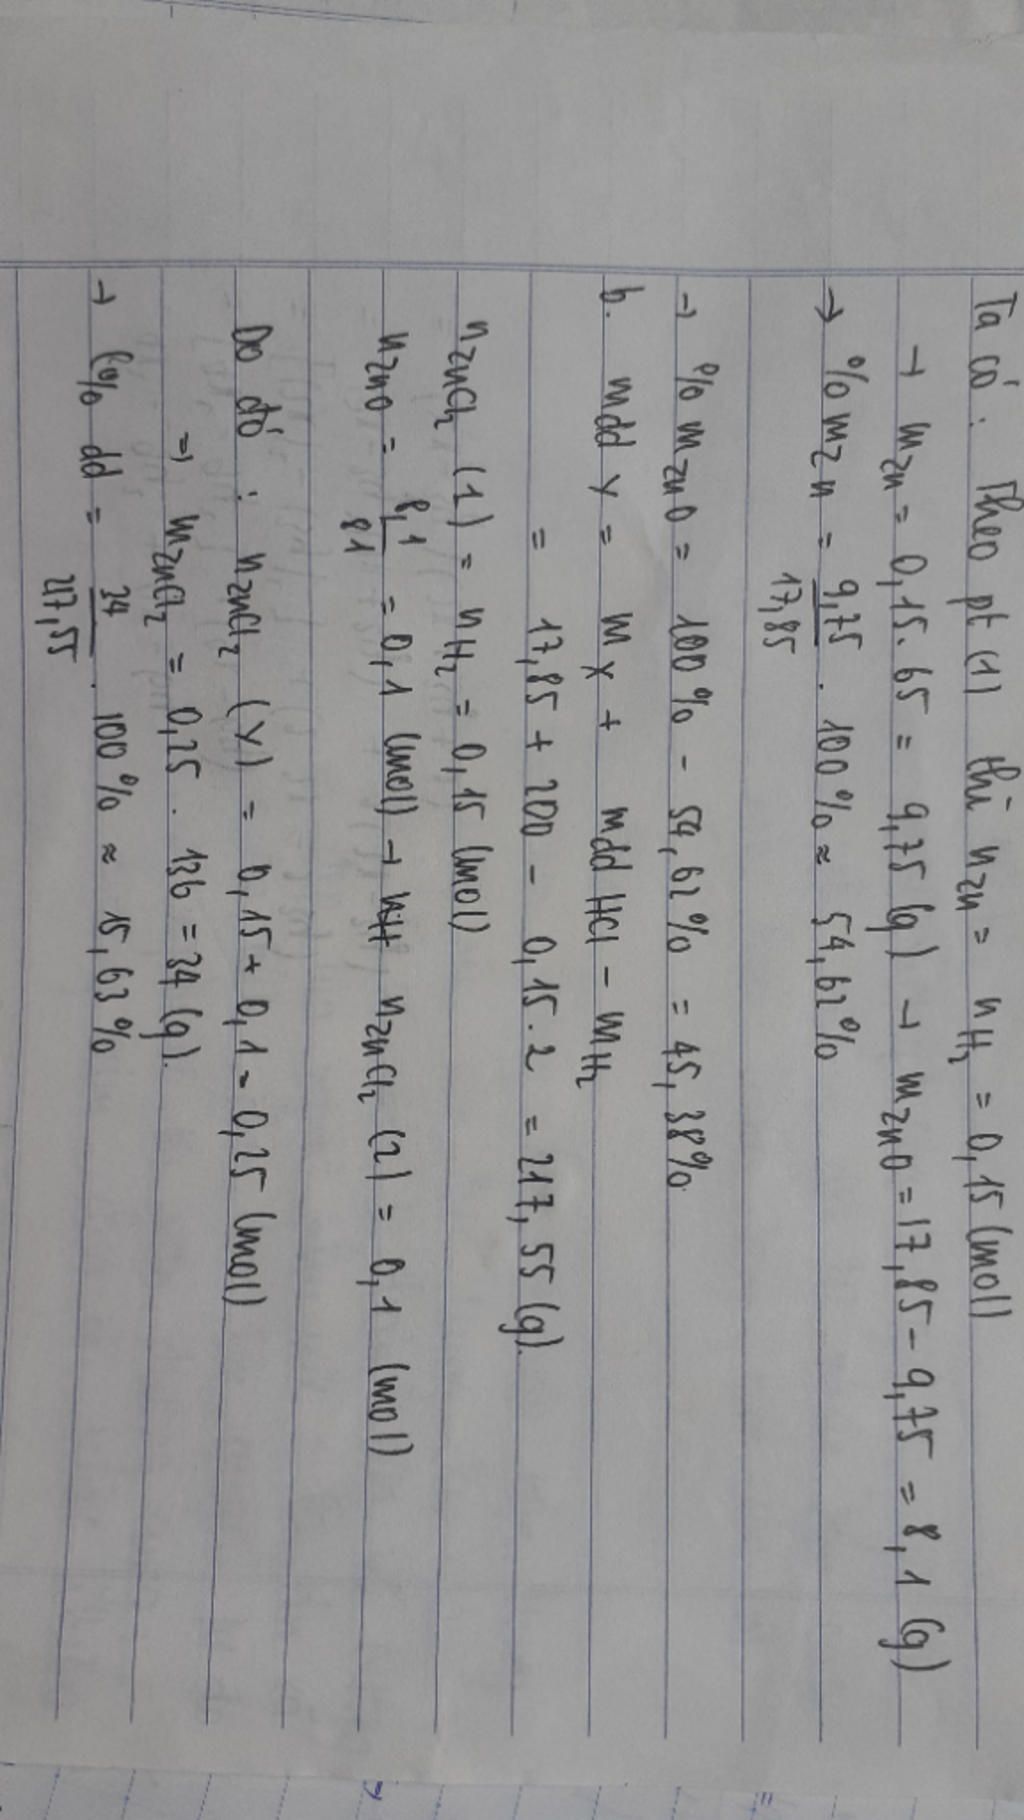 Ta có : Theo pt (1) thì n_Zn = n_H₂ = 0,15 (mol)
→ m_Zn = 0,15 . 65 = 9,75 (g) → m_ZnO = 17,85 - 9,75 = 8,1 (g)
→ % m_Zn = 9,75/17,85 . 100% ≈ 54,62%
→ % m_ZnO = 100% - 54,62% = 45,38%.
b. mdd Y = m_X + mdd HCl - m_H₂
= 17,85 + 200 - 0,15 . 2 = 217,55 (g).
n_ZnCl₂ (1) = n_H₂ = 0,15 (mol)
n_ZnO = 8,1/81 = 0,1 (mol) → n_ZnCl₂ (2) = 0,1 (mol)
Do đó : n_ZnCl₂ (Y) = 0,15 + 0,1 = 0,25 (mol)
→ m_ZnCl₂ = 0,25 . 136 = 34 (g).
→ C% dd = 34/217,55 . 100% ≈ 15,63%